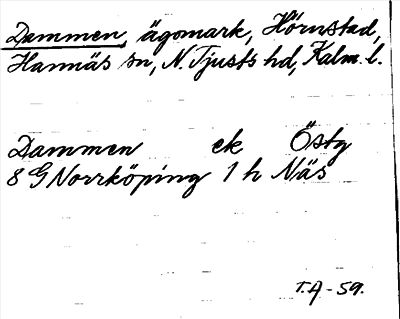 Dammen, ägomark, Hörnstad,
Hannäs sn, N. Tjusts hd, Kalm. l.
Dammen ek Östg
8 G Norrköping 1 h Näs
T.A - 59.